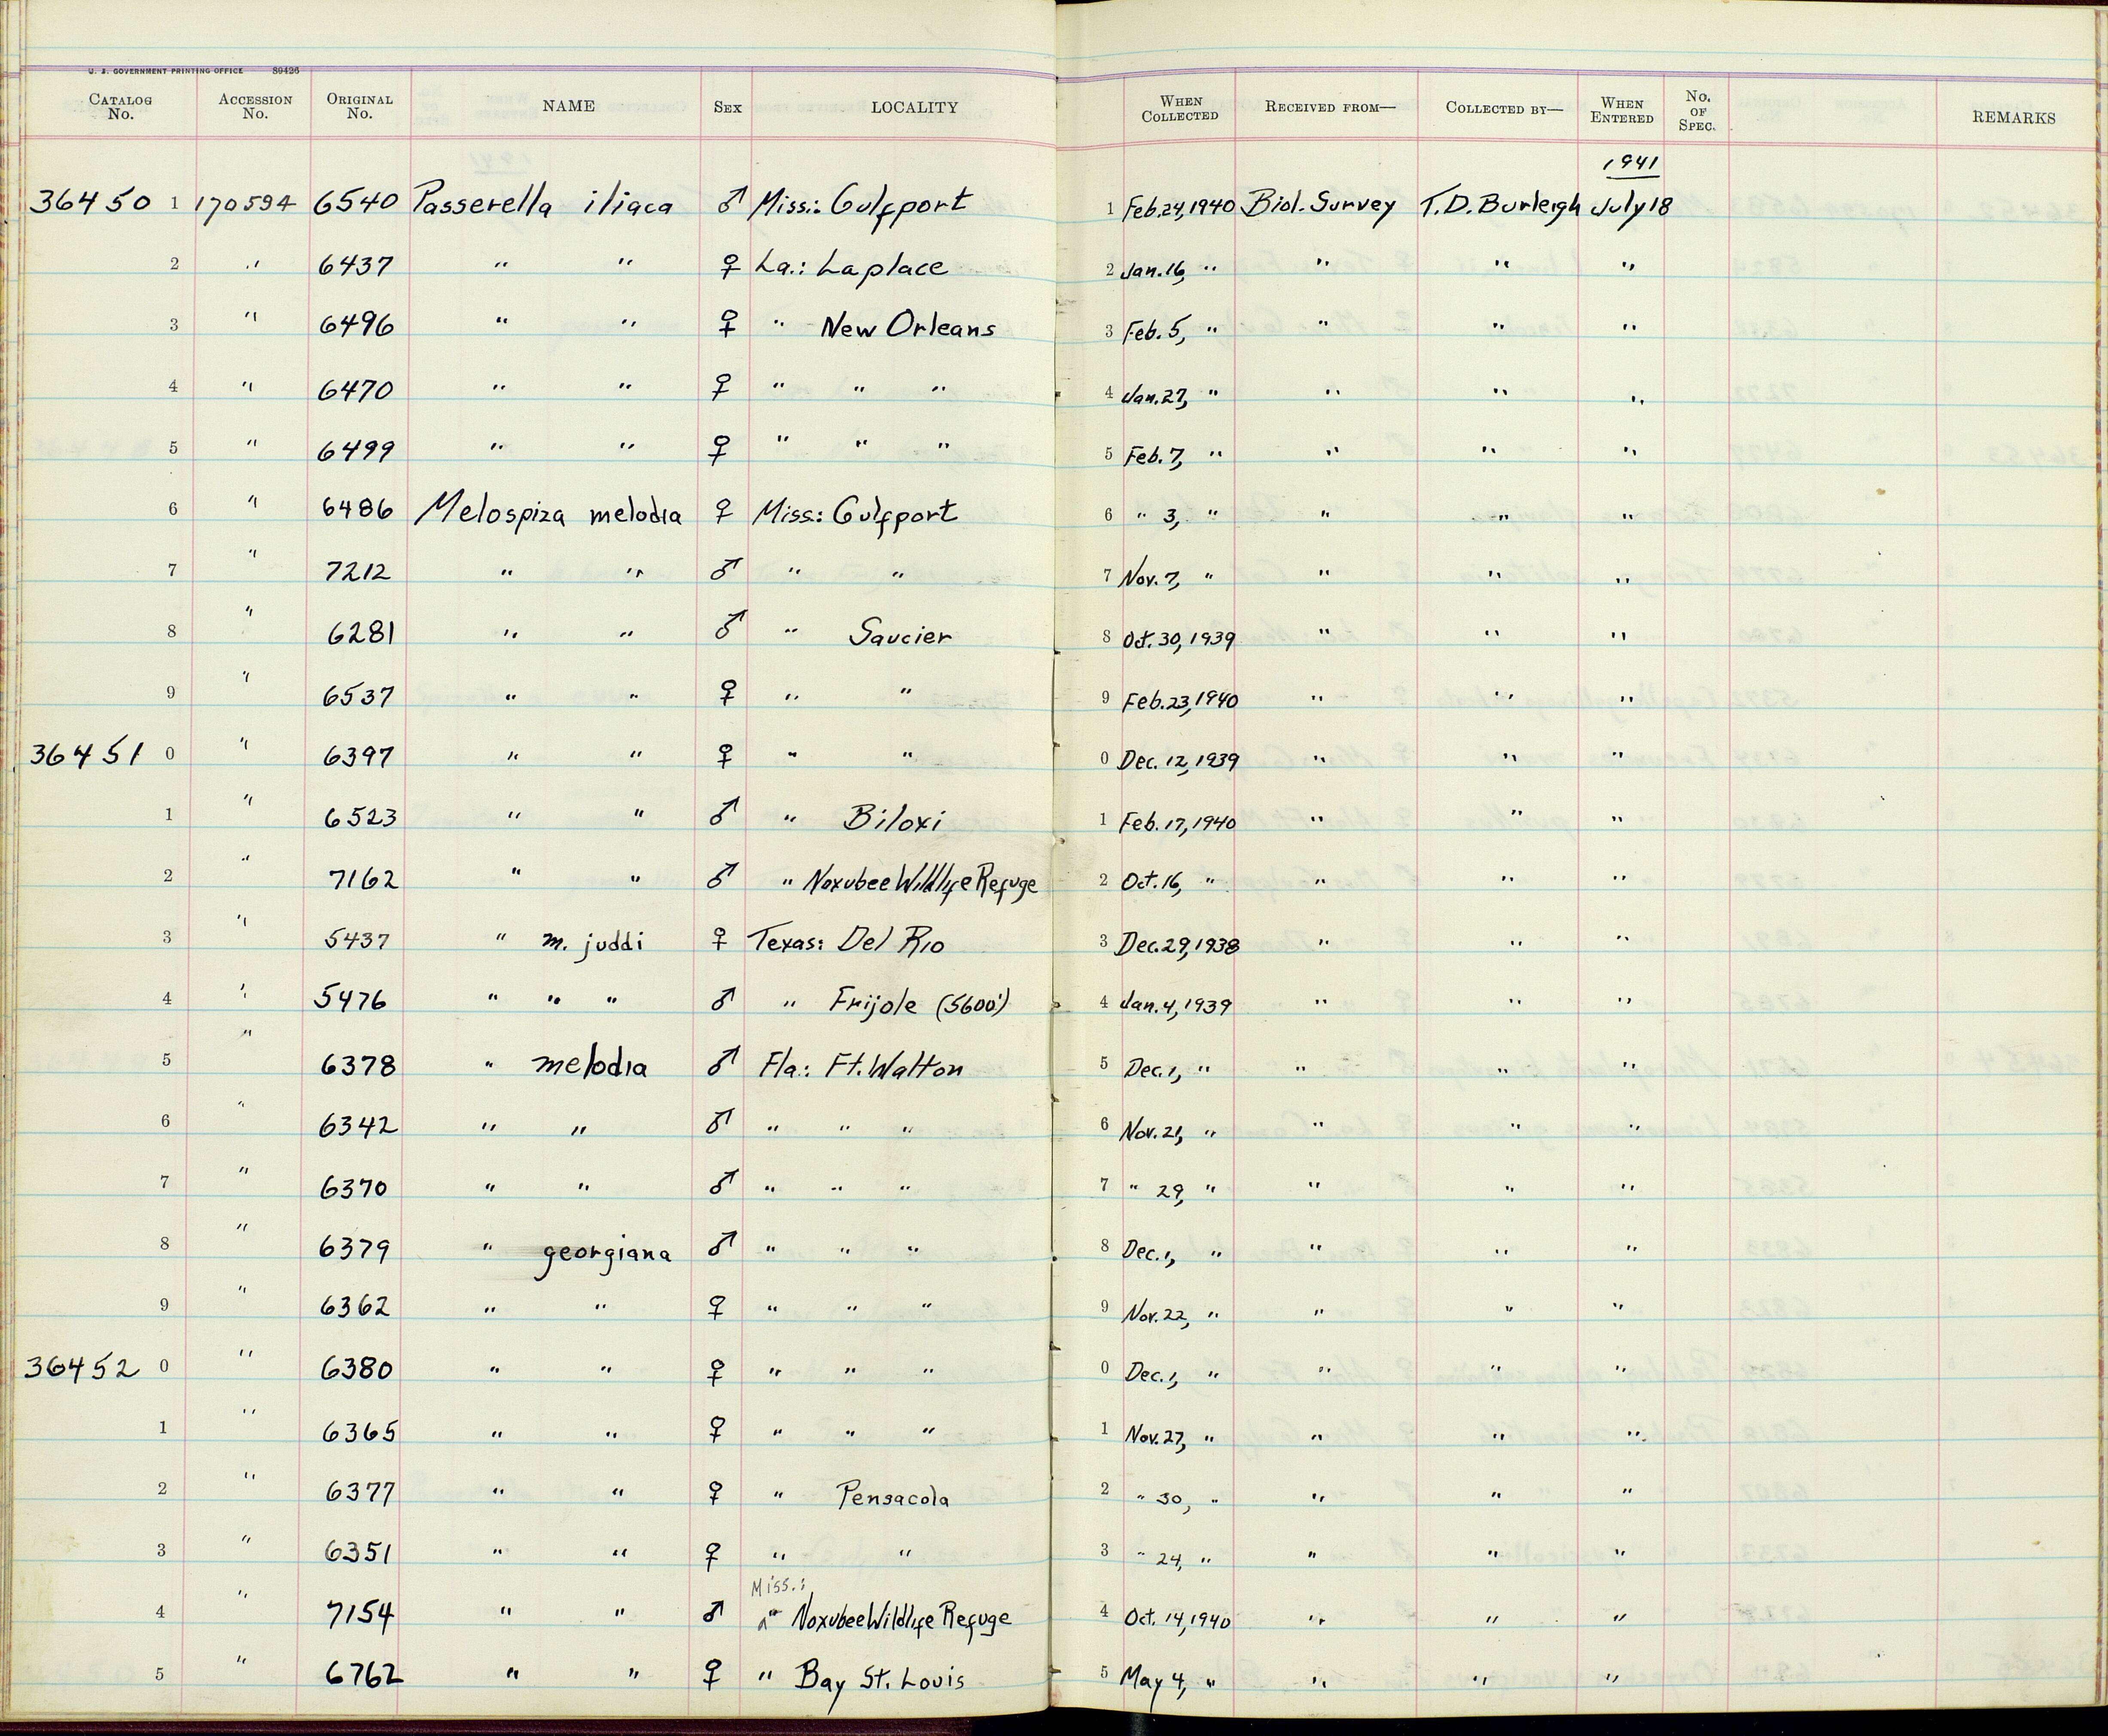 U. S. GOVERNMENT PRINTING OFFICE 89426
CATALOG No. ACCESSION No. ORIGINAL No. NAME SEX LOCALITY WHEN COLLECTED RECEIVED FROM— COLLECTED BY— WHEN ENTERED No. OF SPEC. REMARKS
1941
36450 1 170594 6540 Passerella iliaca ♂ Miss.: Gulfport 1 Feb.24,1940 Biol. Survey T.D. Burleigh July 18
2 " 6437 " " ♀ La.: Laplace 2 Jan.16, " " " "
3 " 6496 " " ♀ " New Orleans 3 Feb. 5, " " " "
4 " 6470 " " ♀ " " " 4 Jan.27, " " " "
5 " 6499 " " ♀ " " " 5 Feb. 7, " " " "
6 " 6486 Melospiza melodia ♀ Miss.: Gulfport 6 " 3, " " " "
7 " 7212 " " ♂ " " 7 Nov. 7, " " " "
8 " 6281 " " ♂ " Saucier 8 Oct. 30, 1939 " " "
9 " 6537 " " ♀ " " 9 Feb.23,1940 " " "
36451 0 " 6397 " " ♀ " " 0 Dec. 12,1939 " " "
1 " 6523 " " ♂ " Biloxi 1 Feb. 17,1940 " " "
2 " 7162 " " ♂ " Noxubee Wildlife Refuge 2 Oct. 16, " " " "
3 " 5437 " m. juddi ♀ Texas: Del Rio 3 Dec.29,1938 " " "
4 " 5476 " " " ♂ " Frijole (5600') 4 Jan. 4, 1939 " " "
5 " 6378 " melodia ♂ Fla.: Ft. Walton 5 Dec. 1, " " " "
6 " 6342 " " ♂ " " " 6 Nov. 21, " " " "
7 " 6370 " " ♂ " " " 7 " 29, " " " "
8 " 6379 " georgiana ♂ " " " 8 Dec. 1, " " " "
9 " 6362 " " ♀ " " " 9 Nov. 22, " " " "
36452 0 " 6380 " " ♀ " " " 0 Dec. 1, " " " "
1 " 6365 " " ♀ " " " 1 Nov. 27, " " " "
2 " 6377 " " ♀ " Pensacola 2 " 30, " " " "
3 " 6351 " " ♀ " " 3 " 24, " " " "
Miss.:
4 " 7154 " " ♂ " Noxubee Wildlife Refuge 4 Oct. 14, 1940 " " "
5 " 6762 " " ♀ " Bay St. Louis 5 May 4, " " " "